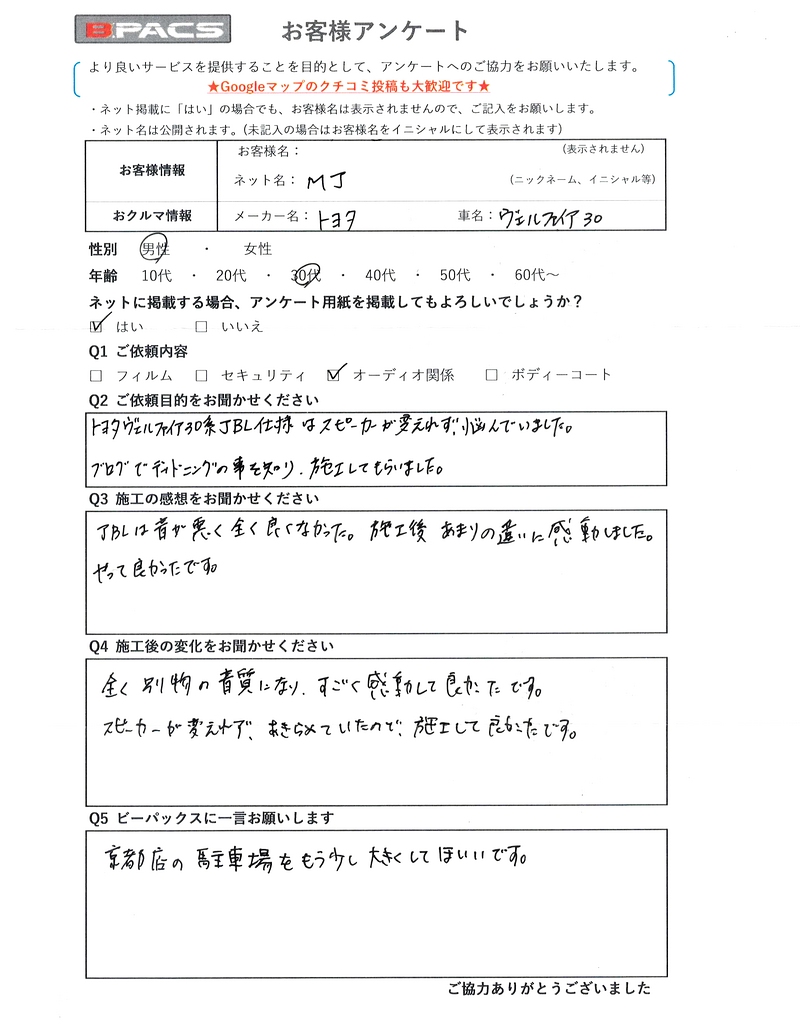 BPACS お客様アンケート
より良いサービスを提供することを目的として、アンケートへのご協力をお願いいたします。
★Googleマップのクチコミ投稿も大歓迎です★
・ネット掲載に「はい」の場合でも、お客様名は表示されませんので、ご記入をお願いします。
・ネット名は公開されます。(未記入の場合はお客様名をイニシャルにして表示されます)
お客様情報 お客様名： (表示されません)
ネット名： MJ (ニックネーム、イニシャル等)
おクルマ情報 メーカー名： トヨタ 車名： ヴェルファイア30
性別 男性 ・ 女性
年齢 10代 ・ 20代 ・ 30代 ・ 40代 ・ 50代 ・ 60代～
ネットに掲載する場合、アンケート用紙を掲載してもよろしいでしょうか？
☑ はい □ いいえ
Q1 ご依頼内容
□ フィルム □ セキュリティ ☑ オーディオ関係 □ ボディーコート
Q2 ご依頼目的をお聞かせください
トヨタヴェルファイア30系JBL仕様はスピーカーが変えれず、悩んでいました。
ブログでデッドニングの事を知り、施工してもらいました。
Q3 施工の感想をお聞かせください
JBLは音が悪く全く良くなかった。施工後あまりの違いに感動しました。
やって良かったです。
Q4 施工後の変化をお聞かせください
全く別物の音質になり、すごく感動して良かったです。
スピーカーが変えれず、あきらめていたので、施工して良かったです。
Q5 ビーパックスに一言お願いします
京都店の駐車場をもう少し大きくしてほしいです。
ご協力ありがとうございました